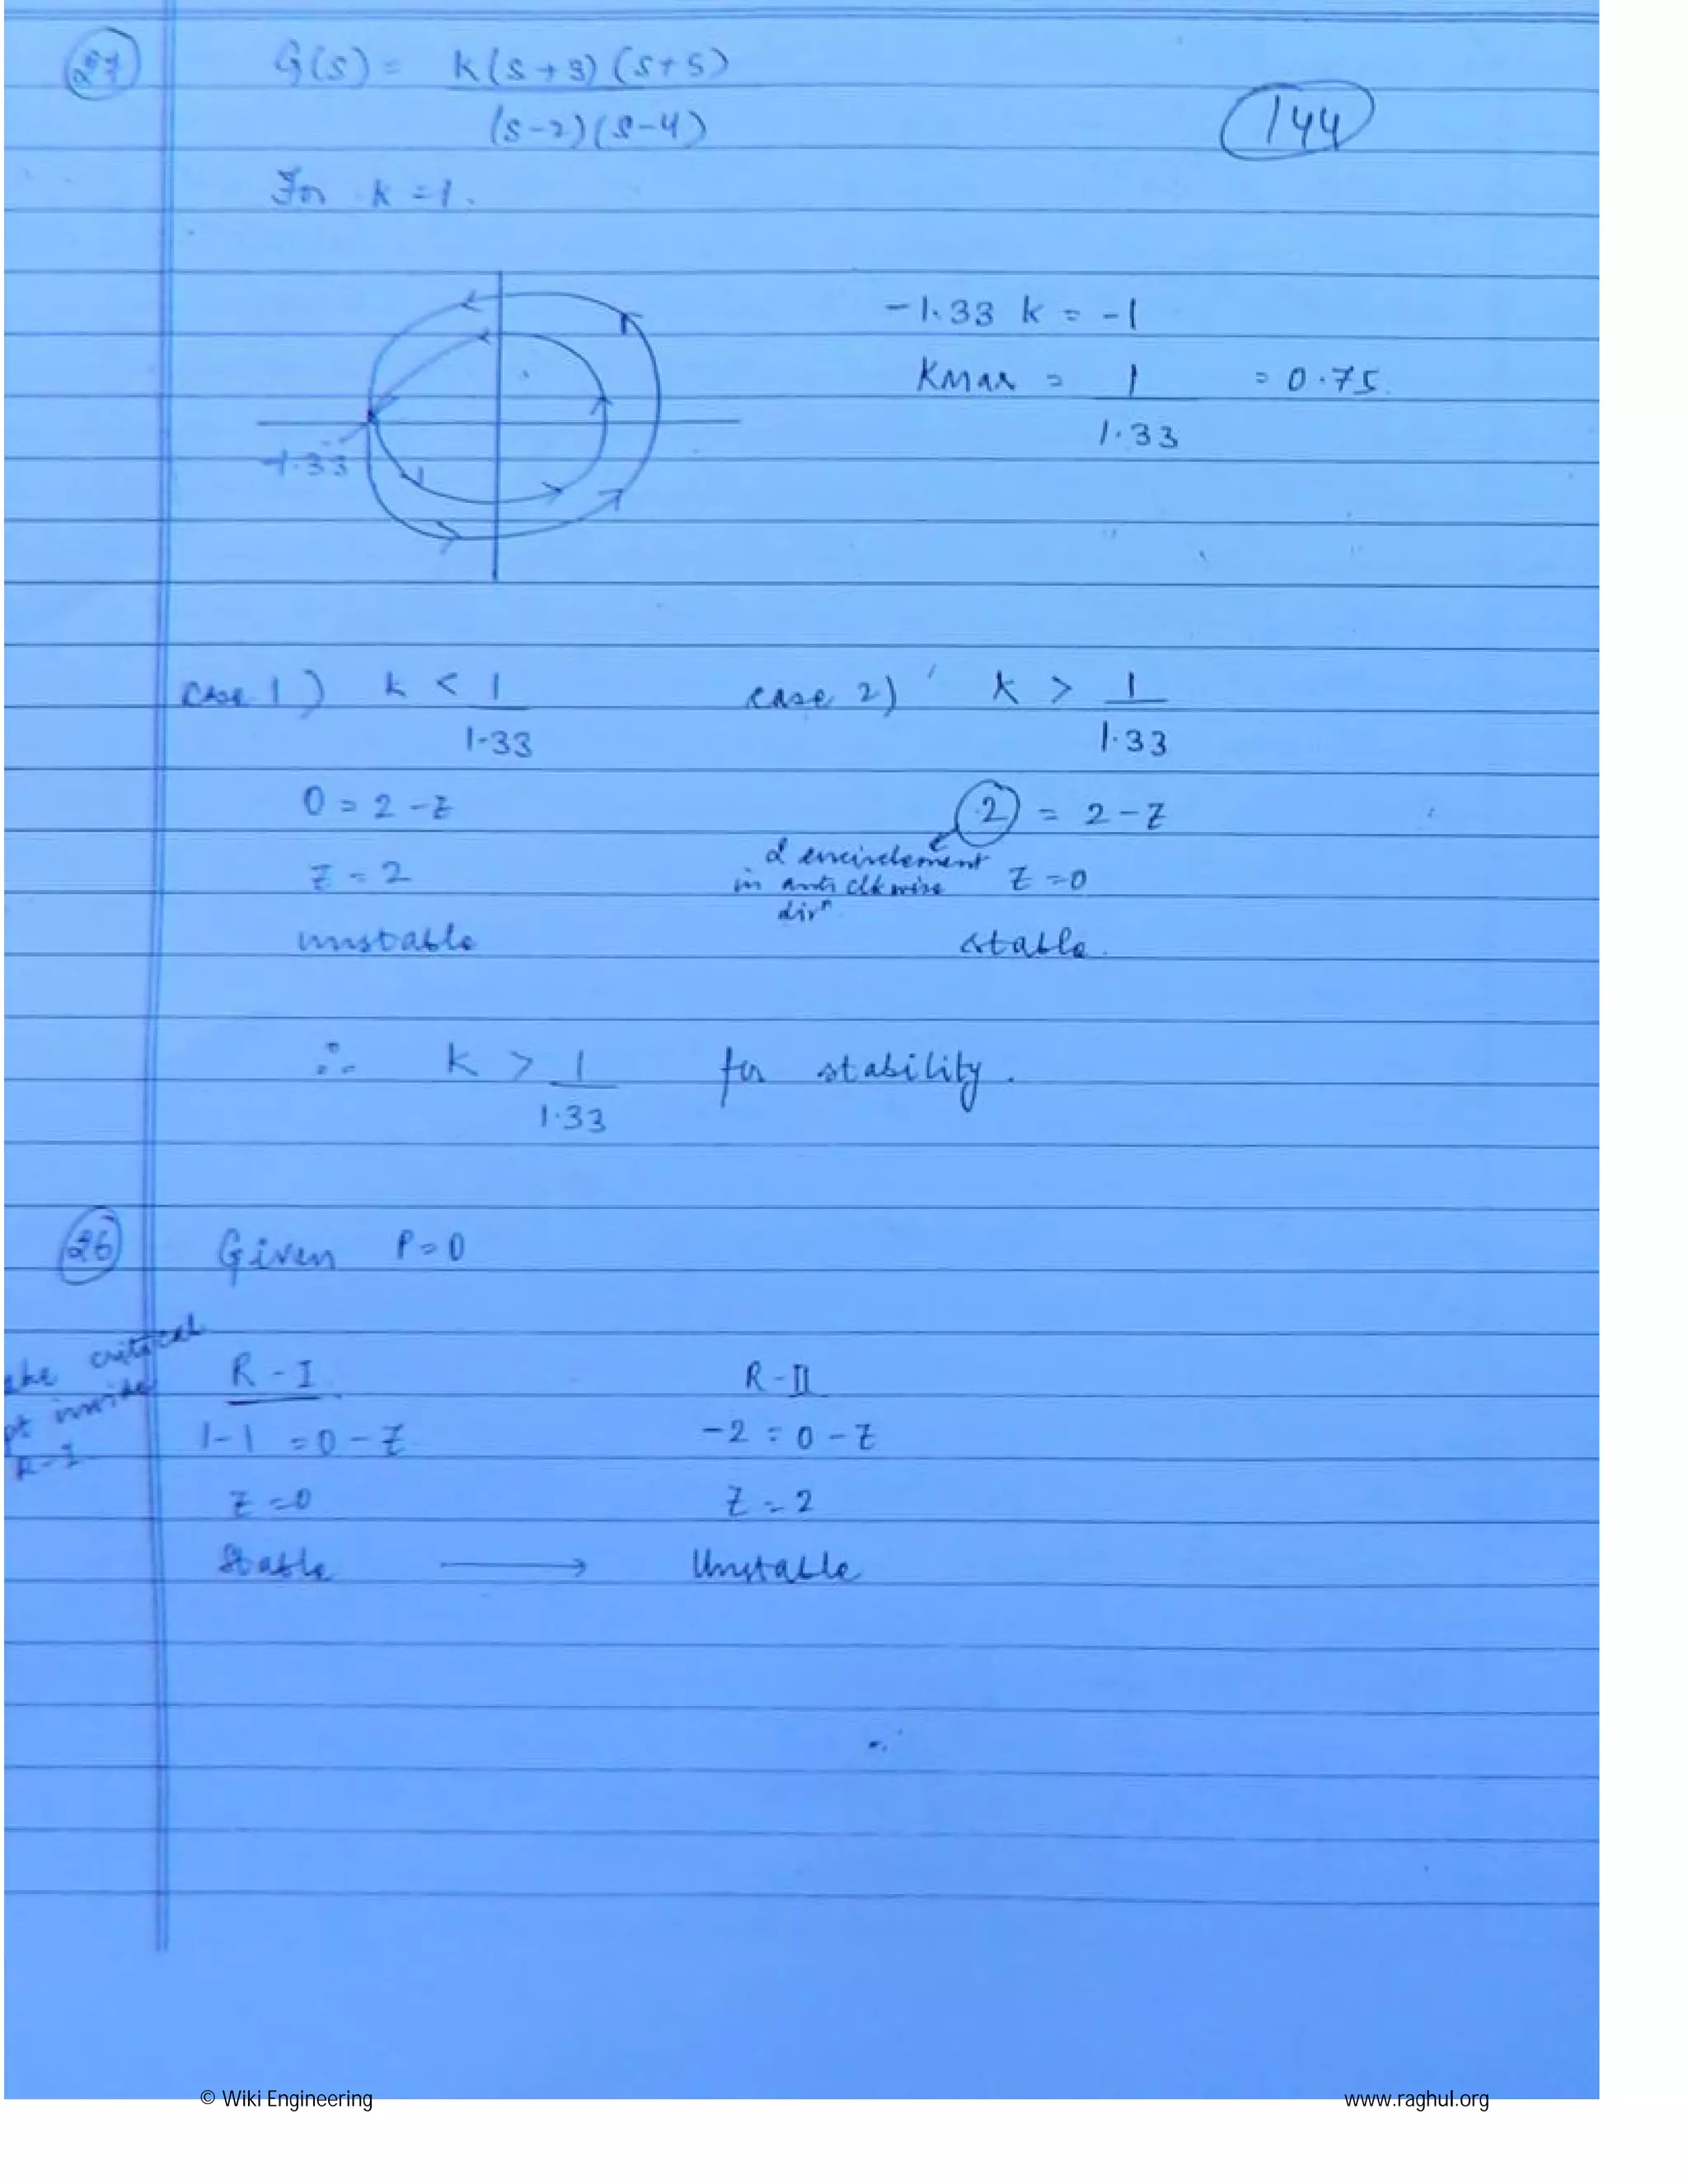 27 G(s) = K(s+3)(s+5)
(s-2)(s-4)
144
For K=1.
-1.33 k = -1
KMax = 1 = 0.75.
1.33
-1.33
case 1) k < 1 case 2) k > 1
1.33 1.33
0 = 2-Z 2 = 2-Z
2 encirclement
in anti clkwise
dirn
Z = 2 Z = 0
unstable stable.
∴ K > 1 for stability.
1.33
26 Given P=0
critical
pt inside
R-I
R-I R-II
1-1 = 0-Z -2 = 0-Z
Z = 0 Z = 2
Stable → Unstable
© Wiki Engineering www.raghul.org